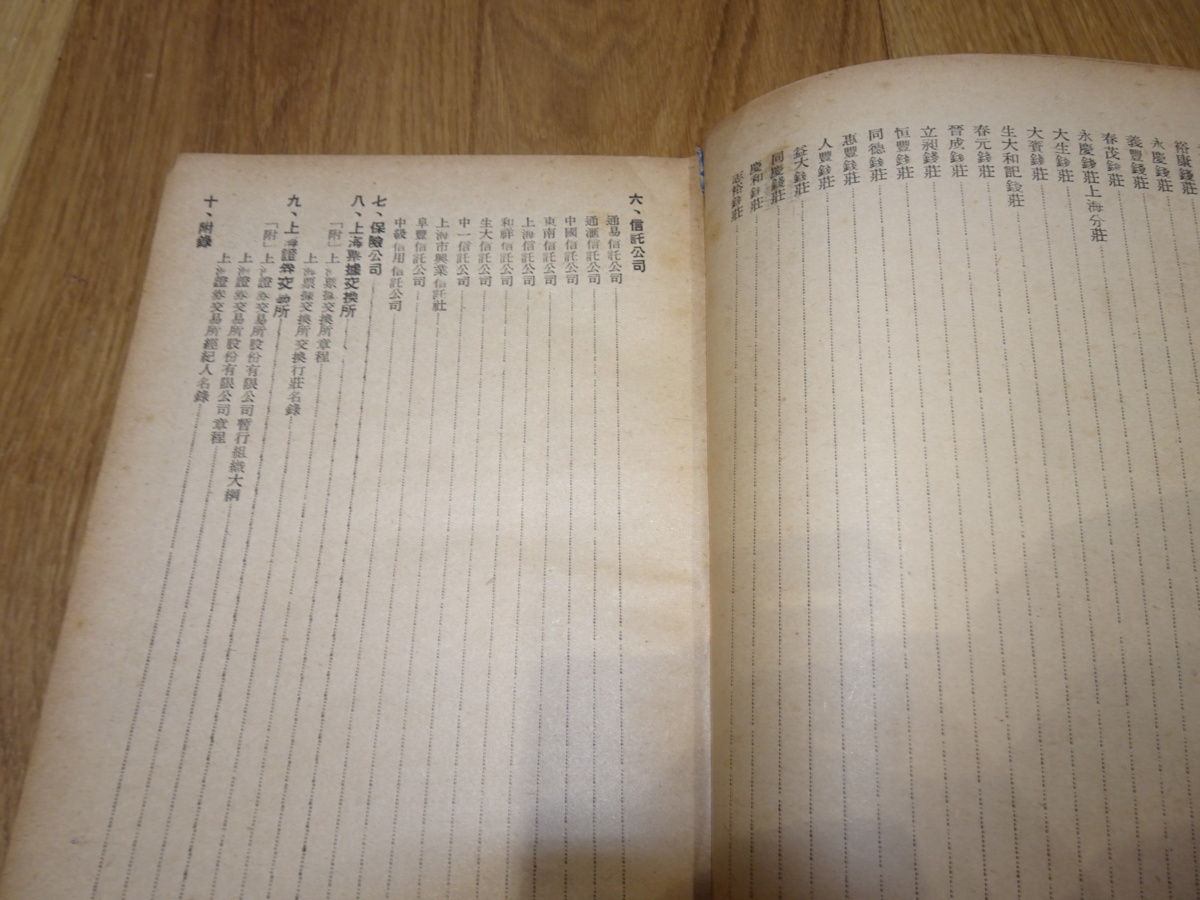 裕康錢莊
永慶錢莊
義豐錢莊
春茂錢莊
永慶錢莊上海分莊
大生錢莊
大賚錢莊
生大和記錢莊
春元錢莊
晉成錢莊
立昶錢莊
恒豐錢莊
同德錢莊
惠豐錢莊
人豐錢莊
益大錢莊
同慶錢莊
慶和錢莊
志裕錢莊
六、信託公司
通易信託公司
通滙信託公司
中國信託公司
東南信託公司
上海信託公司
和祥信託公司
生大信託公司
中一信託公司
上海市興業信託社
阜豐信託公司
中級信用信託公司
七、保險公司
八、上海票據交換所
「附」上海票據交換所章程
上海票據交換所交換行莊名錄
九、上海證券交易所
「附」上海證券交易所股份有限公司暫行組織大綱
上海證券交易所股份有限公司章程
上海證券交易所經紀人名錄
十、附錄